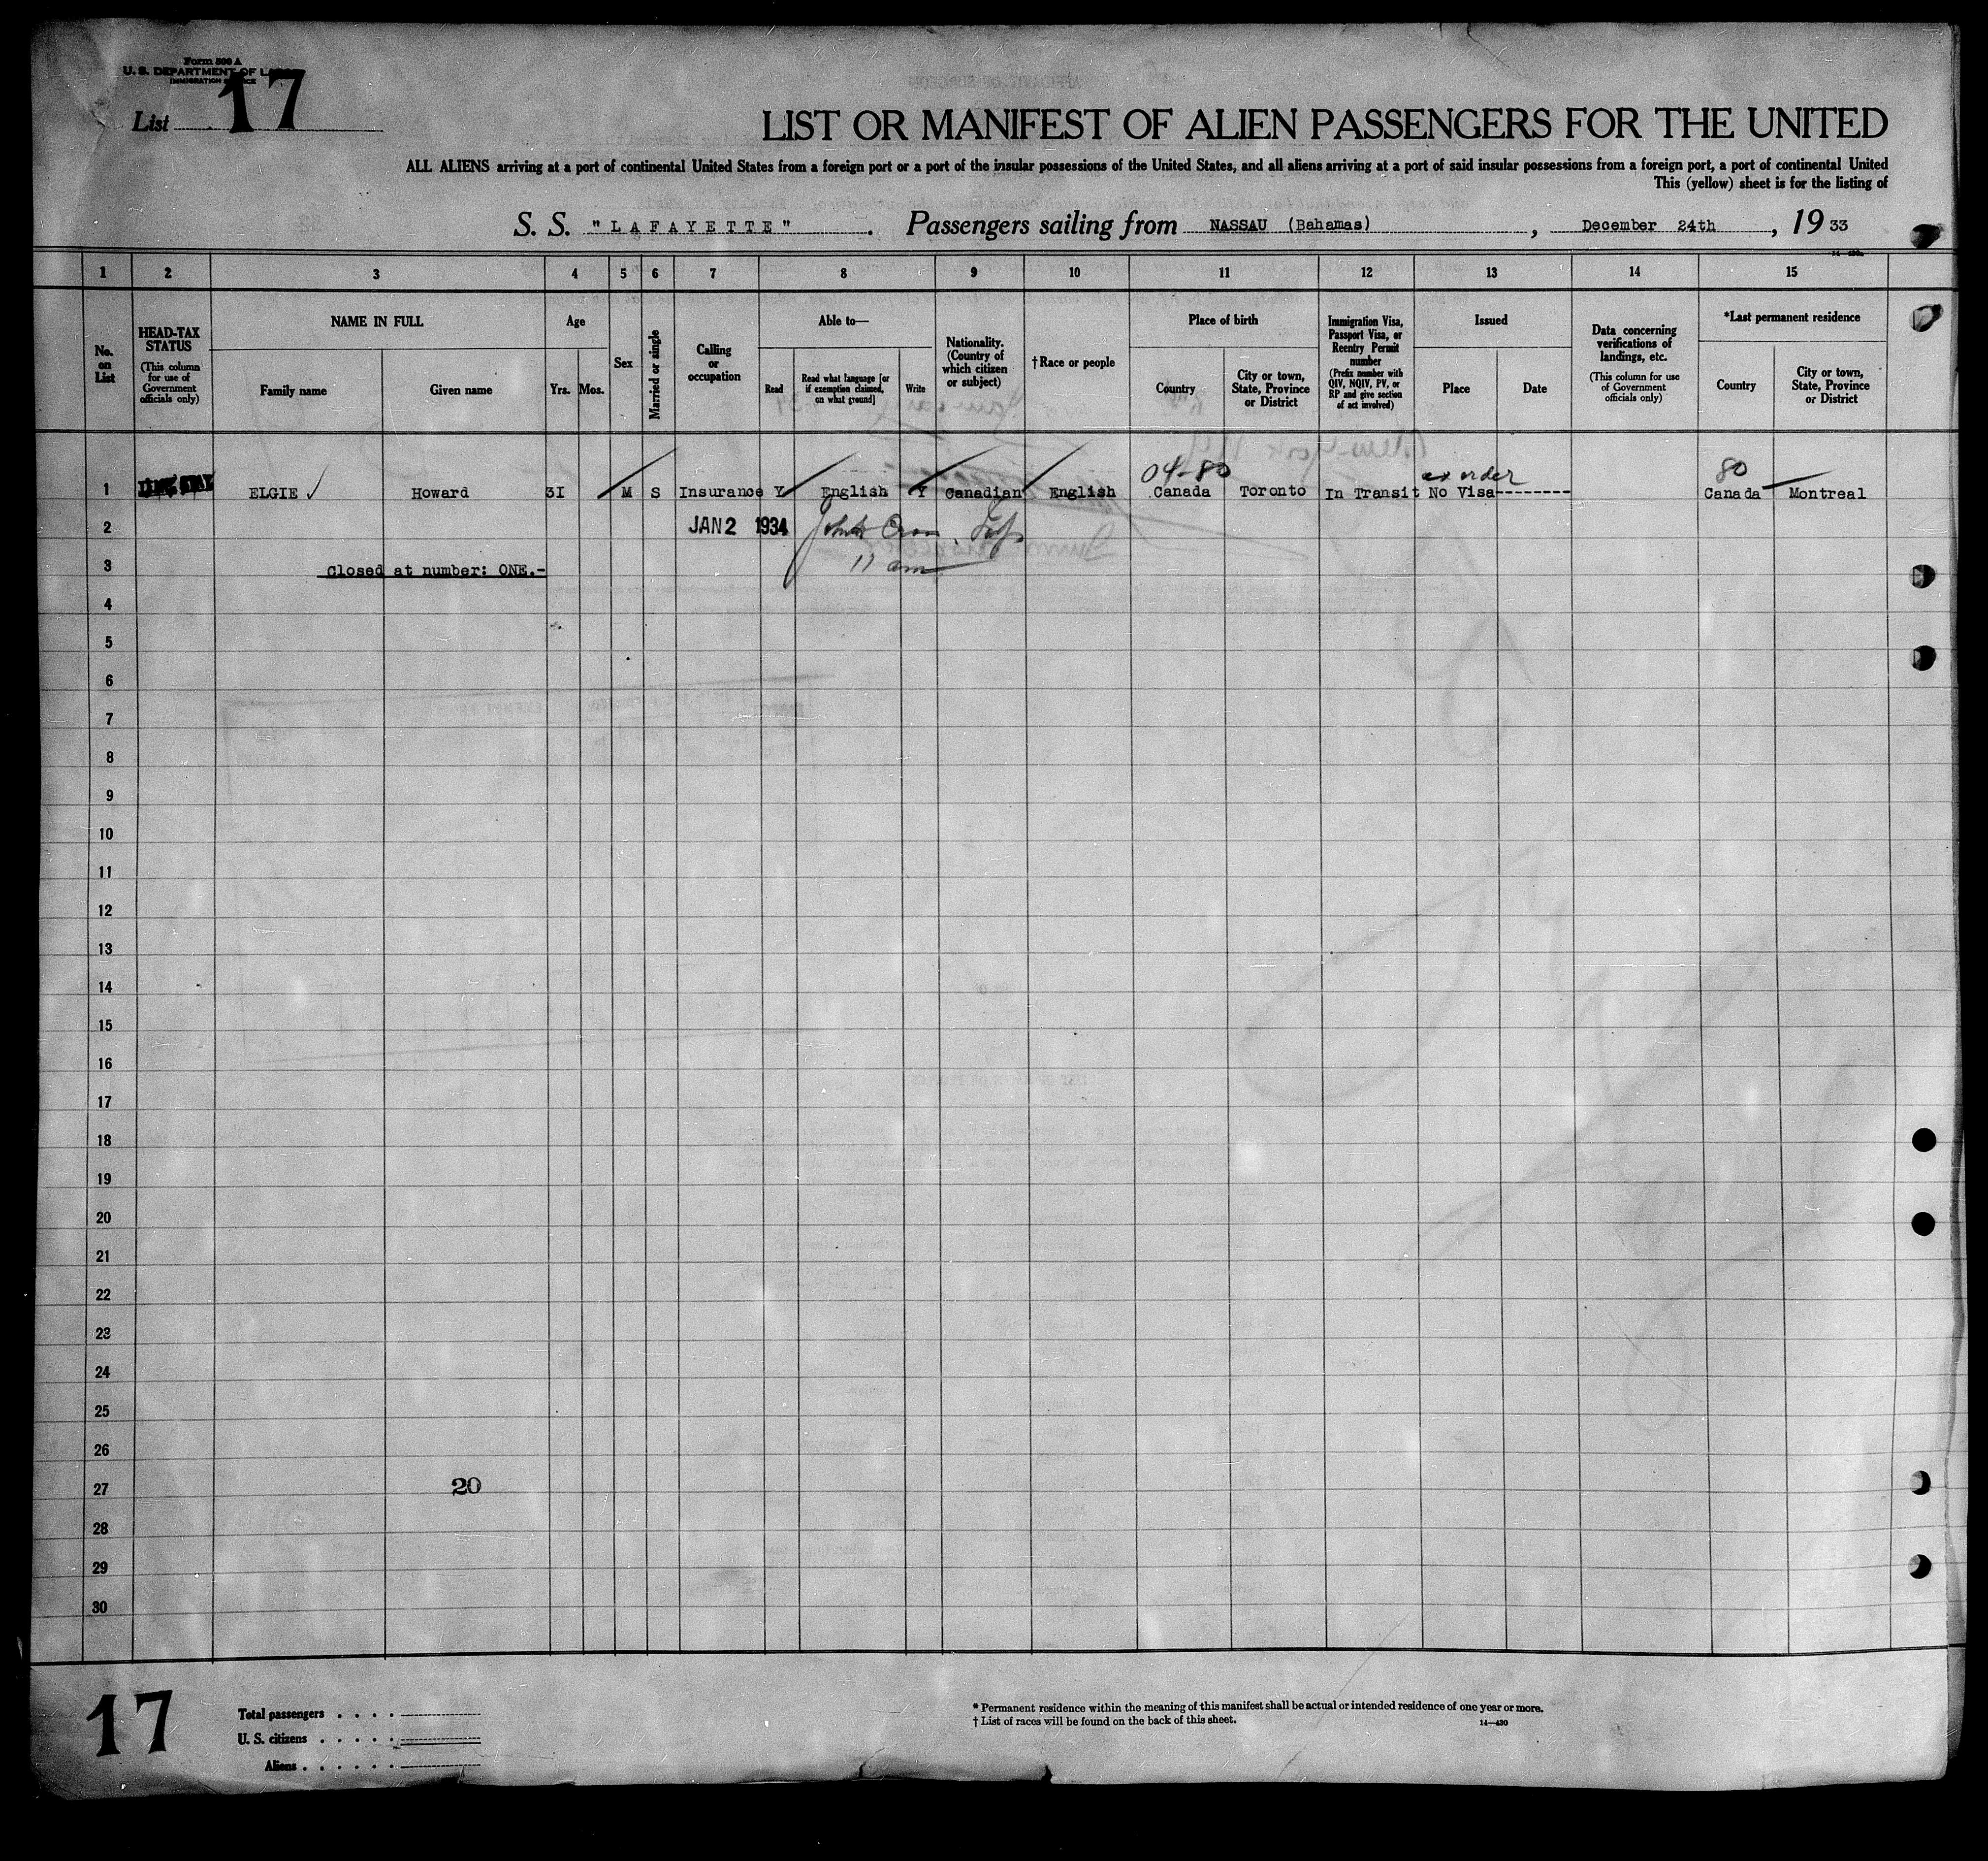 Form 500 A
U. S. DEPARTMENT OF LABOR
IMMIGRATION SERVICE
List 17
LIST OR MANIFEST OF ALIEN PASSENGERS FOR THE UNITED
ALL ALIENS arriving at a port of continental United States from a foreign port or a port of the insular possessions of the United States, and all aliens arriving at a port of said insular possessions from a foreign port, a port of continental United
This (yellow) sheet is for the listing of
S. S. "LAFAYETTE". Passengers sailing from NASSAU (Bahamas), December 24th, 1933
1 2 3 4 5 6 7 8 9 10 11 12 13 14 15
No. on List
HEAD-TAX STATUS
(This column for use of Government officials only)
NAME IN FULL
Family name
Given name
Age
Yrs. Mos.
Sex
Married or single
Calling or occupation
Able to—
Read
Read what language [or if exemption claimed, on what ground]
Write
Nationality. (Country of which citizen or subject)
†Race or people
Place of birth
Country
City or town, State, Province or District
Immigration Visa, Passport Visa, or Reentry Permit number
(Prefix number with QIV, NQIV, PV, or RP and give section of act involved)
Issued
Place
Date
Data concerning verifications of landings, etc.
(This column for use of Government officials only)
*Last permanent residence
Country
City or town, State, Province or District
04-80 ex order 80
1 ELGIE ✓ Howard 3I M S Insurance Y English Y Canadian English Canada Toronto In Transit No Visa--------- Canada Montreal
2 JAN 2 1934
11 am
3 Closed at number: ONE.-
4
5
6
7
8
9
10
11
12
13
14
15
16
17
18
19
20
21
22
23
24
25
26
27 20
28
29
30
17
Total passengers
U. S. citizens
Aliens
* Permanent residence within the meaning of this manifest shall be actual or intended residence of one year or more.
† List of races will be found on the back of this sheet.
14—430